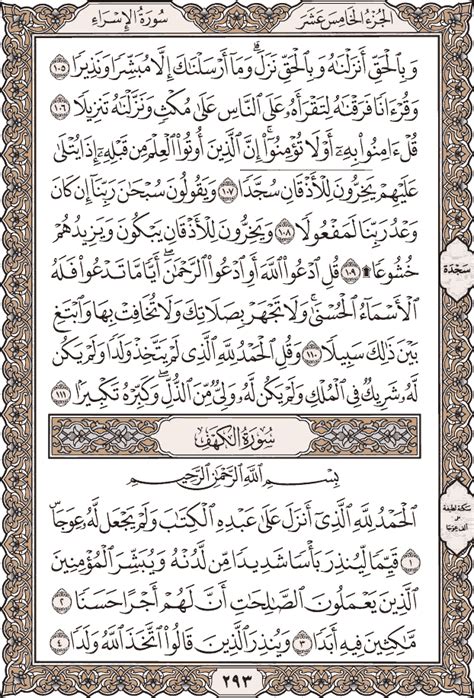 سُورَةُ الإِسْرَاء
الجُزْءُ الخَامِسَ عَشَرَ
وَبِالْحَقِّ أَنزَلْنَاهُ وَبِالْحَقِّ نَزَلَ ۗ وَمَا أَرْسَلْنَاكَ إِلَّا مُبَشِّرًا وَنَذِيرًا ١٠٥
وَقُرْءَانًا فَرَقْنَاهُ لِتَقْرَأَهُ عَلَى النَّاسِ عَلَىٰ مُكْثٍ وَنَزَّلْنَاهُ تَنزِيلًا ١٠٦
قُلْ ءَامِنُوا بِهِ أَوْ لَا تُؤْمِنُوا ۚ إِنَّ الَّذِينَ أُوتُوا الْعِلْمَ مِن قَبْلِهِ إِذَا يُتْلَىٰ
عَلَيْهِمْ يَخِرُّونَ لِلْأَذْقَانِ سُجَّدًا ١٠٧ وَيَقُولُونَ سُبْحَانَ رَبِّنَا إِن كَانَ
وَعْدُ رَبِّنَا لَمَفْعُولًا ١٠٨ وَيَخِرُّونَ لِلْأَذْقَانِ يَبْكُونَ وَيَزِيدُهُمْ
خُشُوعًا ۩ ١٠٩ قُلِ ادْعُوا اللَّهَ أَوِ ادْعُوا الرَّحْمَٰنَ ۖ أَيًّا مَّا تَدْعُوا فَلَهُ
الْأَسْمَاءُ الْحُسْنَىٰ ۚ وَلَا تَجْهَرْ بِصَلَاتِكَ وَلَا تُخَافِتْ بِهَا وَابْتَغِ
بَيْنَ ذَٰلِكَ سَبِيلًا ١١٠ وَقُلِ الْحَمْدُ لِلَّهِ الَّذِي لَمْ يَتَّخِذْ وَلَدًا وَلَمْ يَكُن
لَّهُ شَرِيكٌ فِي الْمُلْكِ وَلَمْ يَكُن لَّهُ وَلِيٌّ مِّنَ الذُّلِّ ۖ وَكَبِّرْهُ تَكْبِيرًا ١١١
سَجْدَة
سُورَةُ الكَهْفِ
بِسْمِ اللَّهِ الرَّحْمَٰنِ الرَّحِيمِ
الْحَمْدُ لِلَّهِ الَّذِي أَنزَلَ عَلَىٰ عَبْدِهِ الْكِتَابَ وَلَمْ يَجْعَل لَّهُ عِوَجًا ۜ
١ قَيِّمًا لِّيُنذِرَ بَأْسًا شَدِيدًا مِّن لَّدُنْهُ وَيُبَشِّرَ الْمُؤْمِنِينَ
الَّذِينَ يَعْمَلُونَ الصَّالِحَاتِ أَنَّ لَهُمْ أَجْرًا حَسَنًا ٢
مَّاكِثِينَ فِيهِ أَبَدًا ٣ وَيُنذِرَ الَّذِينَ قَالُوا اتَّخَذَ اللَّهُ وَلَدًا ٤
سكتة لطيفة
على
ألف عوجا
٢٩٣